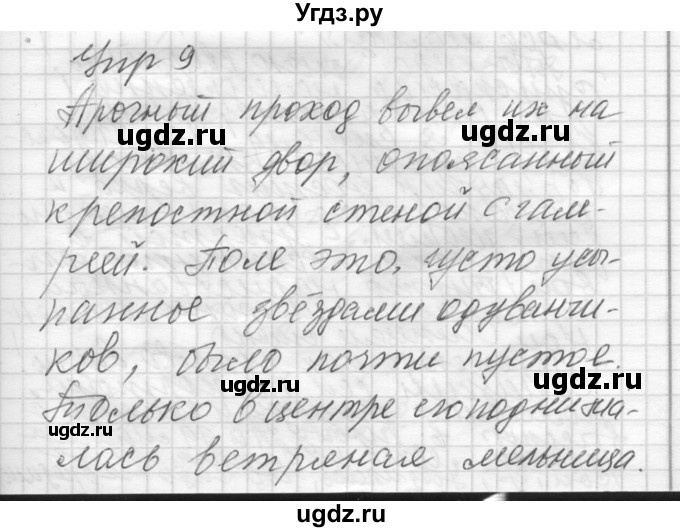 Угдз.ру
Упр 9
Арочный проход вывел их на
широкий двор, опоясанный
крепостной стеной с гале-
реей. Поле это, густо усы-
панное звёздами одуванчи-
ков, было почти пустое.
Только в центре его поднима-
лась ветряная мельница.
ugdz.ru
ugdz.ru
ugdz.ru
ugdz.ru
ugdz.ru
ugdz.ru
ugdz.ru
ugdz.ru
ugdz.ru
ugdz.ru